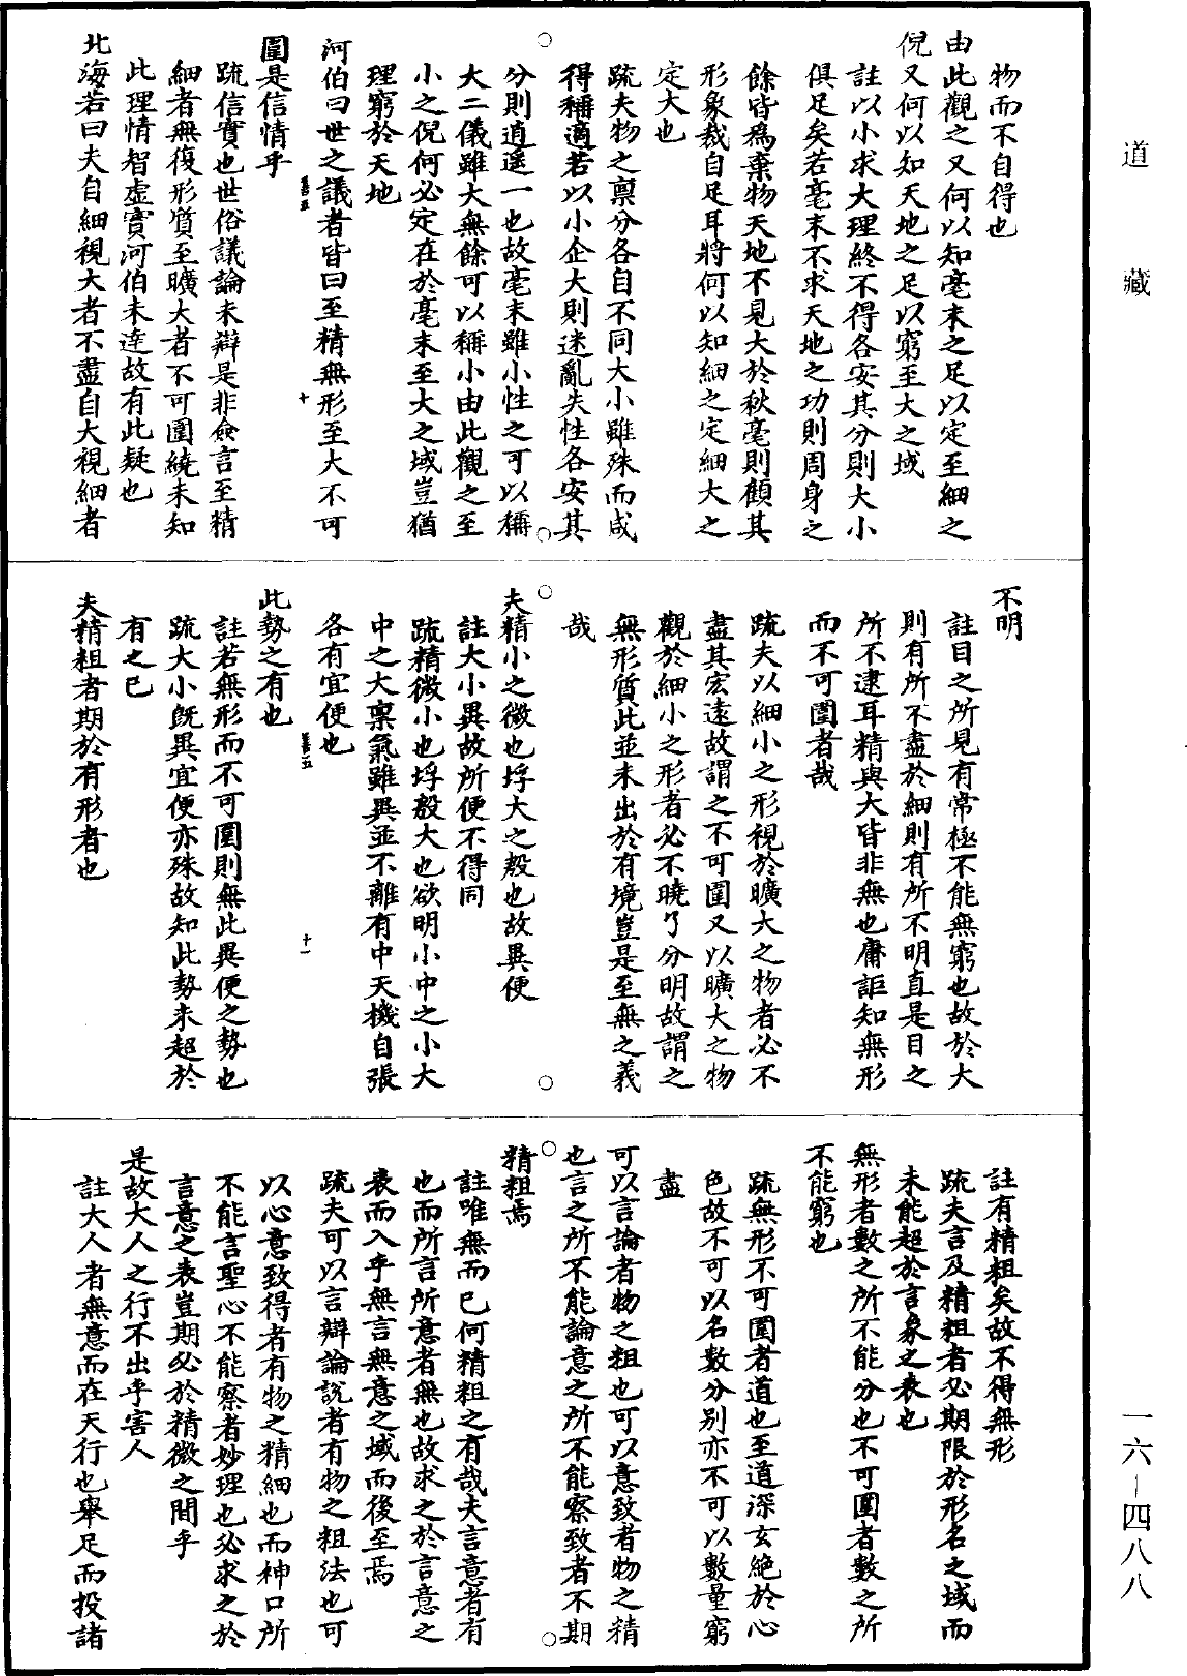 道藏
物而不自得也
由此觀之又何以知毫末之足以定至細之
倪又何以知天地之足以窮至大之域
註以小求大理終不得各安其分則大小
俱足矣若毫末不求天地之功則周身之
餘皆為棄物天地不見大於秋毫則顧其
形象裁自足耳將何以知細之定細大之
定大也
疏夫物之稟分各自不同大小雖殊而咸
得稱適若以小企大則迷亂失性各安其
分則逍遙一也故毫末雖小性之可以稱
大二儀雖大無餘可以稱小由此觀之至
小之倪何必定在於毫末至大之域豈猶
理窮於天地
河伯曰世之議者皆曰至精無形至大不可
十
圍是信情乎
疏信實也世俗議論未辯是非僉言至精
細者無復形質至曠大者不可圍繞未知
此理情智虛實河伯未達故有此疑也
北海若曰夫自細視大者不盡自大視細者
不明
註目之所見有常極不能無窮也故於大
則有所不盡於細則有所不明直是目之
所不逮耳精與大皆非無也庸詎知無形
而不可圍者哉
疏夫以細小之形視於曠大之物者必不
盡其宏遠故謂之不可圍又以曠大之物
觀於細小之形者必不曉了分明故謂之
無形質此並未出於有境豈是至無之義
哉
夫精小之微也垺大之殷也故異便
註大小異故所便不得同
疏精微小也垺殷大也欲明小中之小大
中之大稟氣雖異並不離有中天機自張
各有宜便也
十一
此勢之有也
註若無形而不可圍則無此異便之勢也
疏大小既異宜便亦殊故知此勢未超於
有之已
夫精粗者期於有形者也
註有精粗矣故不得無形
疏夫言及精粗者必期限於形名之域而
未能超於言象之表也
無形者數之所不能分也不可圍者數之所
不能窮也
疏無形不可圍者道也至道深玄絕於心
色故不可以名數分別亦不可以數量窮
盡
可以言論者物之粗也可以意致者物之精
也言之所不能論意之所不能察致者不期
精粗焉
註唯無而已何精粗之有哉夫言意者有
也而所言所意者無也故求之於言意之
表而入乎無言無意之域而後至焉
疏夫可以言辯論說者有物之粗法也可
以心意致得者有物之精細也而神口所
不能言聖心不能察者妙理也必求之於
言意之表豈期必於精微之間乎
是故大人之行不出乎害人
註大人者無意而在天行也舉足而投諸
一六-四八八